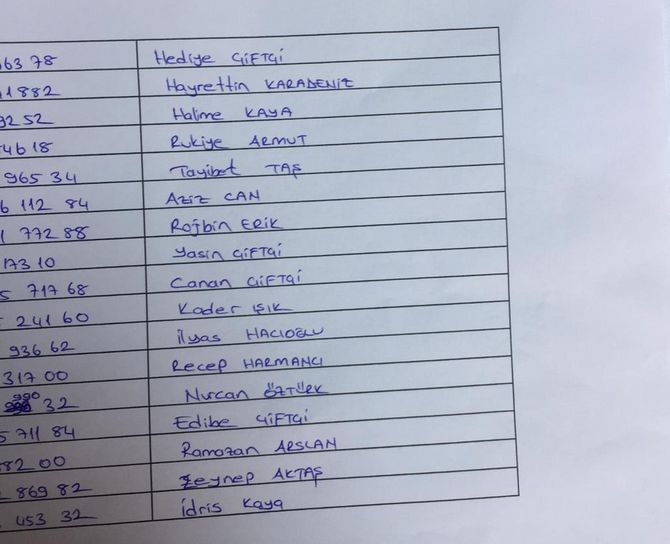 63 78 Hediye ÇİFTÇİ
1882 Hayrettin KARADENİZ
92 52 Halime KAYA
4618 Rukiye ARMUT
965 34 Tayibet TAŞ
6 112 84 AZİZ CAN
1 772 88 Rojbin ERİK
17310 Yasin ÇİFTÇİ
5 717 68 Canan ÇİFTÇİ
241 60 Kader IŞIK
936 62 İlyas HACIOĞLU
317 00 Recep HARMANCI
990 32 Nurcan ÖZTÜRK
5 711 84 Edibe ÇİFTÇİ
82 00 Ramazan ARSLAN
869 82 Zeynep AKTAŞ
453 32 İdris Kaya